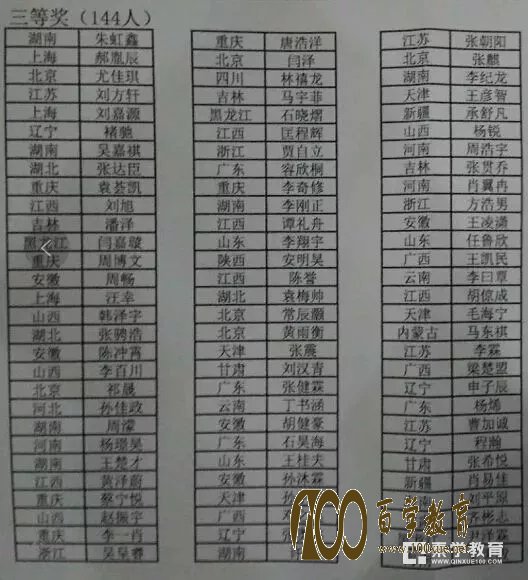 三等奖（144人）
湖南 朱虹鑫
上海 郝胤辰
北京 尤佳琪
江苏 刘方轩
上海 刘嘉源
辽宁 褚驰
湖南 吴嘉祺
湖北 张达臣
重庆 袁荟凯
江西 刘旭
吉林 潘泽
黑龙江 闫嘉
重庆 周博文
安徽 周畅
上海 汪幸
山西 韩泽宇
湖北 张骋浩
安徽 陈冲霄
山西 李百川
北京 祁晟
河北 孙佳政
湖南 周濛
河南 杨璟昊
湖南 王楚才
江西 黄泽蔚
重庆 蔡宁悦
山西 赵振宇
重庆 李一肖
浙江 吴呈睿
重庆 唐浩洋
北京 闫泽
四川 林禧龙
吉林 马宇菲
黑龙江 石晓熠
江西 匡程辉
浙江 贾自立
广东 容欣桐
重庆 李奇修
湖南 李刚正
江西 谭礼舟
山东 李翔宇
陕西 安明昊
江西 陈誉
湖北 袁梅帅
北京 常辰灏
北京 黄雨衡
天津 张震
甘肃 刘汉青
广东 张健霖
云南 丁书涵
安徽 胡健豪
广东 石昊海
山东 王桂夫
安徽 孙沐霖
天津
广西
辽宁
湖南
江苏 张朝阳
北京 张麒
湖南 李纪龙
天津 王彦智
新疆 承舒凡
山西 杨锐
河南 周浩宇
吉林 张贯乔
河南 肖翼冉
浙江 方浩男
安徽 王凌潇
山东 任鲁欣
广西 王凯民
云南 李曰覃
江西 胡倞成
天津 毛海宁
内蒙古 马东祺
江苏 李霖
广西 梁楚盟
辽宁 申子辰
广东 杨烯
江苏 曹加诚
辽宁 程瀚
甘肃 张希悦
新疆 肖易佳
刘平原
彬志
100 百学教育
www.100xue.net
秦学教育
WWW.QINXUE100.COM